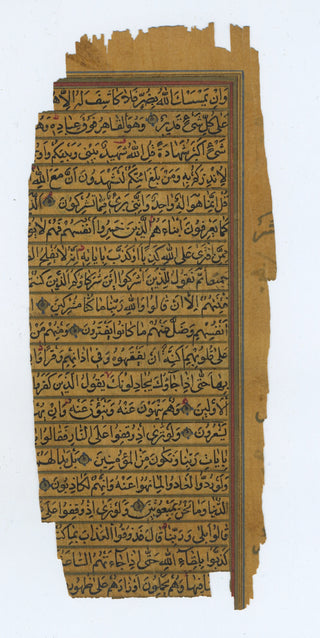 وَاِنْ يَمْسَسْكَ اللهُ بِضُرٍّ فَلَا كَاشِفَ لَهُ اِلَّا
عَلَى كُلِّ شَيْءٍ قَدِيرٌ وَهُوَ الْقَاهِرُ فَوْقَ عِبَادِهِ وَهُوَ
شَيْءٍ اَكْبَرُ شَهَادَةً قُلِ اللهُ شَهِيدٌ بَيْنِي وَبَيْنَكُمْ
لِاُنْذِرَكُمْ بِهِ وَمَنْ بَلَغَ اَئِنَّكُمْ لَتَشْهَدُونَ اَنَّ مَعَ اللهِ
قُلْ اِنَّمَا هُوَ اِلَهٌ وَاحِدٌ وَاِنَّنِي بَرِيءٌ مِمَّا تُشْرِكُونَ
كَمَا يَعْرِفُونَ اَبْنَاءَهُمُ الَّذِينَ خَسِرُوا اَنْفُسَهُمْ فَهُمْ لَا
مِمَّنِ افْتَرَى عَلَى اللهِ كَذِبًا اَوْ كَذَّبَ بِاٰيَاتِهِ اِنَّهُ لَا يُفْلِحُ
جَمِيعًا ثُمَّ نَقُولُ لِلَّذِينَ اَشْرَكُوا اَيْنَ شُرَكَاؤُكُمُ الَّذِينَ
فِتْنَتُهُمْ اِلَّا اَنْ قَالُوا وَاللهِ رَبِّنَا مَا كُنَّا مُشْرِكِينَ
اَنْفُسِهِمْ وَضَلَّ عَنْهُمْ مَا كَانُوا يَفْتَرُونَ وَمِنْهُمْ مَنْ
عَلَى قُلُوبِهِمْ اَكِنَّةً اَنْ يَفْقَهُوهُ وَفِي اٰذَانِهِمْ وَقْرًا
بِهَا حَتَّى اِذَا جَاؤُكَ يُجَادِلُونَكَ يَقُولُ الَّذِينَ كَفَرُوا
الْاَوَّلِينَ وَهُمْ يَنْهَوْنَ عَنْهُ وَيَنْئَوْنَ عَنْهُ وَاِنْ
يَشْعُرُونَ وَلَوْ تَرَى اِذْ وُقِفُوا عَلَى النَّارِ فَقَالُوا
بِاٰيَاتِ رَبِّنَا وَنَكُونَ مِنَ الْمُؤْمِنِينَ بَلْ بَدَا لَهُمْ
وَلَوْ رُدُّوا لَعَادُوا لِمَا نُهُوا عَنْهُ وَاِنَّهُمْ لَكَاذِبُونَ
الدُّنْيَا وَمَا نَحْنُ بِمَبْعُوثِينَ وَلَوْ تَرَى اِذْ وُقِفُوا عَلَى
قَالُوا بَلَى وَرَبِّنَا قَالَ فَذُوقُوا الْعَذَابَ بِمَا
كَذَّبُوا بِلِقَاءِ اللهِ حَتَّى اِذَا جَاءَتْهُمُ
فِيهَا وَهُمْ يَحْمِلُونَ اَوْزَارَهُمْ عَلَى